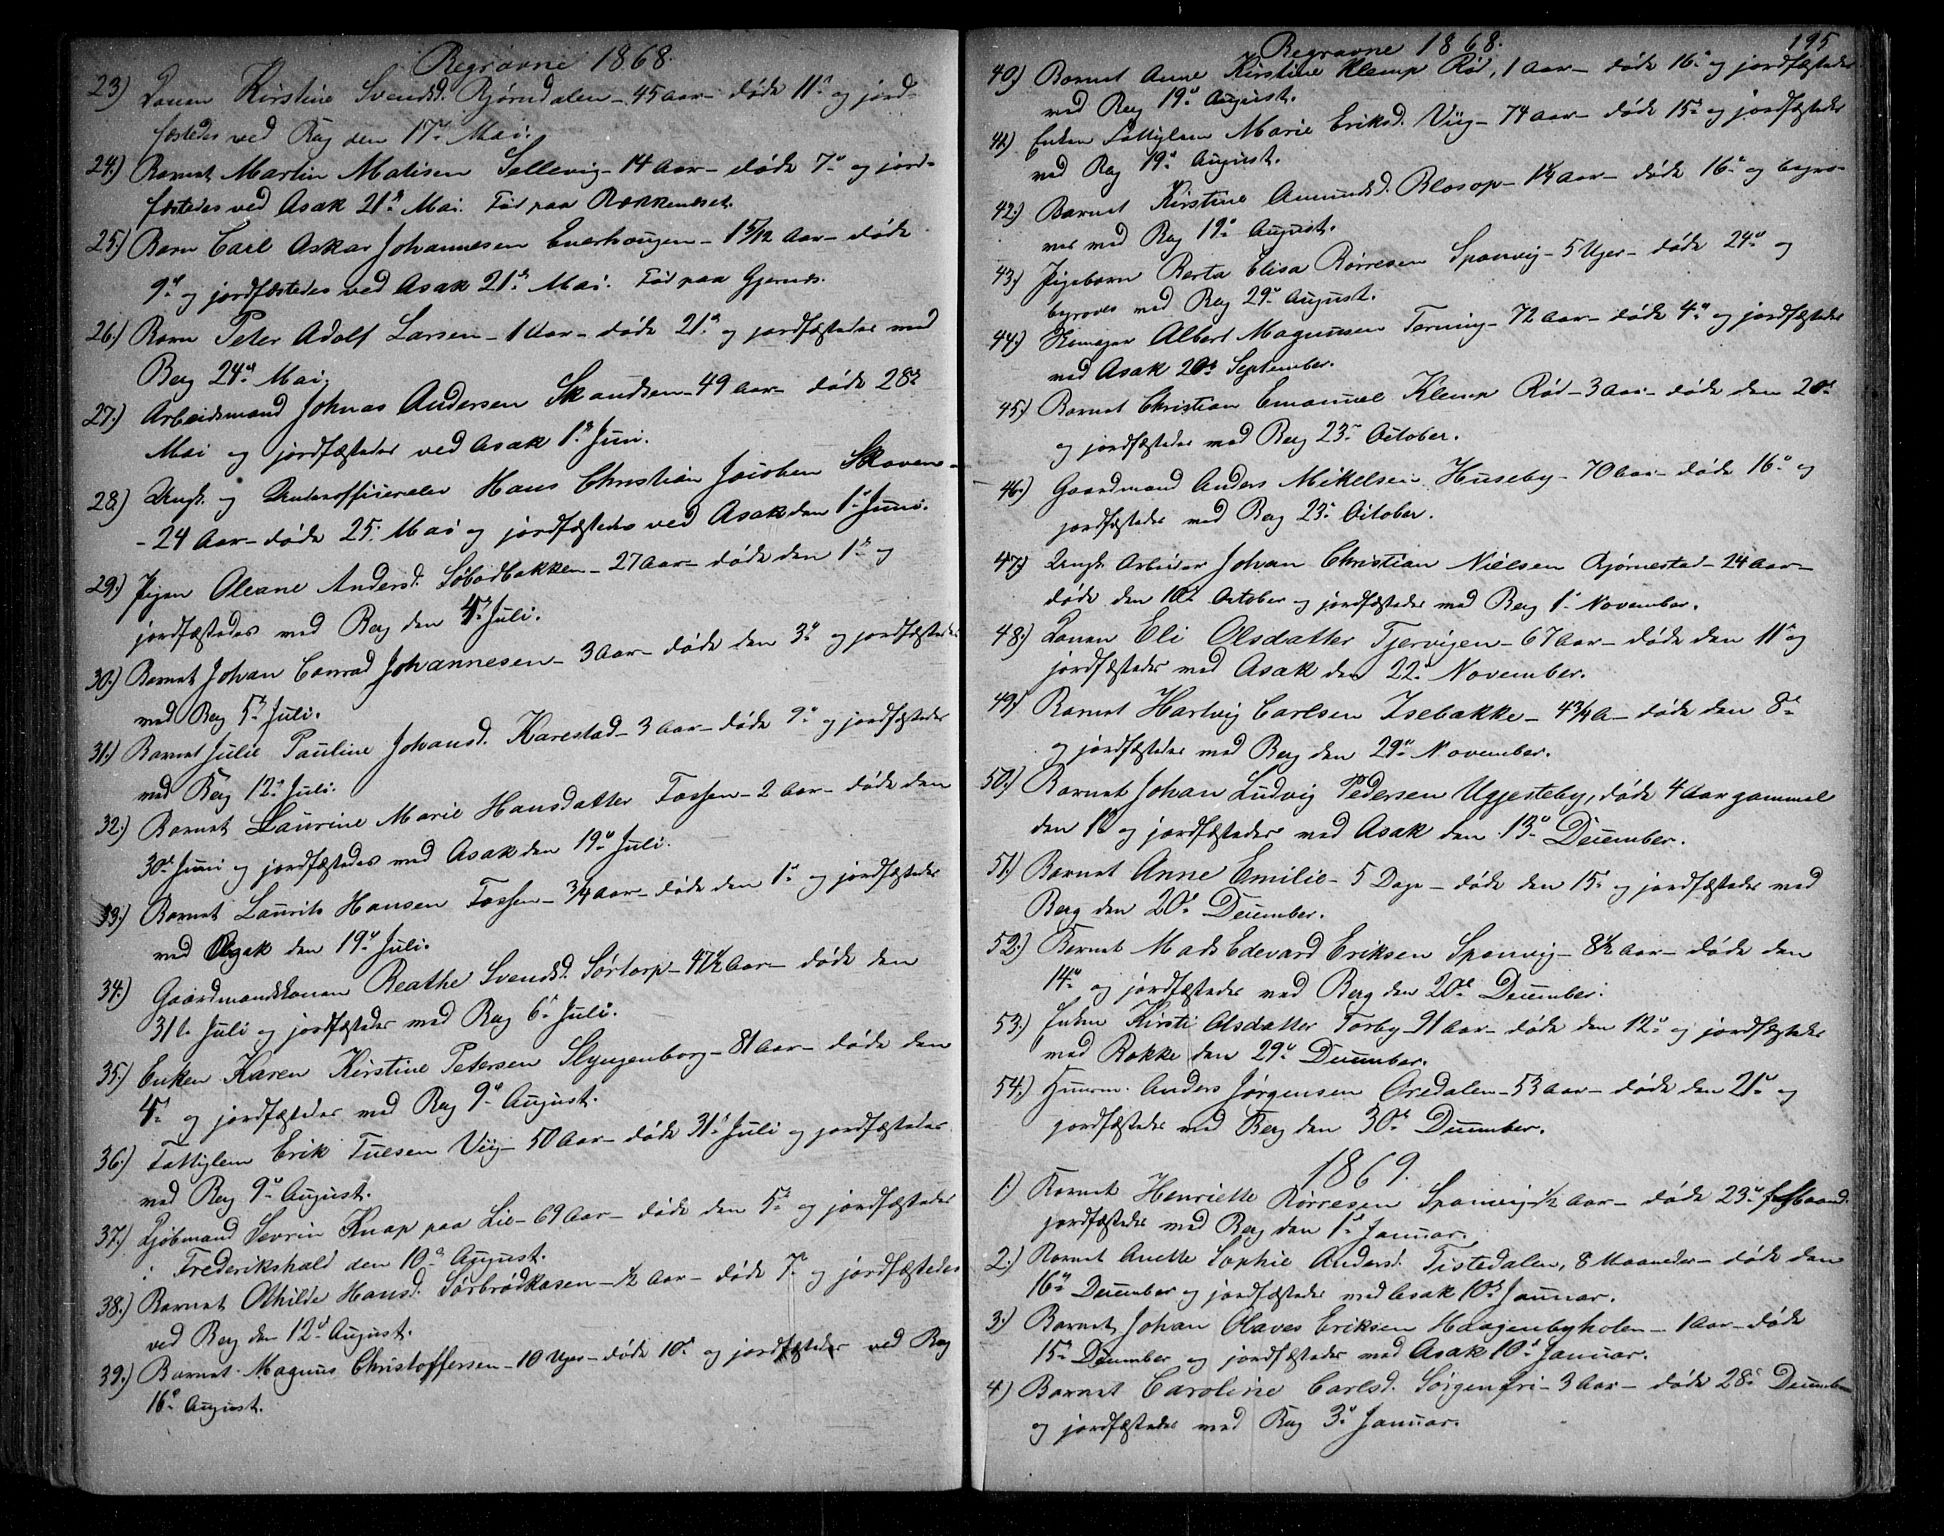 Begravne 1868.
23.) Konen Kirstine Svendsd. Bjørndalen – 45 Aar – døde 11te og jord-
fæstedes ved Berg den 17de Mai.
24.) Barnet Martin Matisen Sollevig – 14 Aar – døde 7de og jord-
fæstedes ved Asak 21de Mai. Fød paa Bakkeneset.
25.) Barn Carl Oskar Johannesen Enerhougen – 1 5/12 Aar – døde
9de og jordfæstedes ved Asak 21de Mai. Fød paa
26.) Barn Peter Adolf Larsen – 1 Aar – døde 21de og jordfæstedes ved
Berg 24de Mai.
27.) Arbeidsmand Johnas Andersen Skandsen – 49 Aar – døde 28de
Mai og jordfæstedes ved Asak 1ste Juni.
28.) Ungk. og Underofficerelev Hans Christian Jacobsen Skoven-
– 24 Aar – døde 25. Mai og jordfæstedes ved Asak den 1ste Juni.
29.) Pigen Oleane Andersd. Søbodbakken – 27 Aar – døde den 1ste og
jordfæstedes ved Berg den 4de Juli.
30.) Barnet Johan Conrad Johannesen – 3 Aar – døde den 3de og jordfæstedes
ved Berg 5te Juli.
31.) Barnet Julie Pauline Johansd. Karestad – 3 Aar – døde 9de og jordfæstedes
ved Berg 12te Juli.
32.) Barnet Laurine Marie Hansdatter Fossen – 2 Aar – døde den
30te Juni og jordfæstedes ved Asak den 19de Juli.
33.) Barnet Laurits Hansen Fossen – 3/4 Aar – døde den 1ste og jordfæstedes
ved Asak den 19de Juli.
34.) Gaardmandskonen Beathe Svendsd. Sørtorp – 47 1/2 Aar – døde den
31te Juli og jordfæstedes ved Berg 6te Juli.
35.) Enken Karen Kirstine Petersen Slyngenborg – 81 Aar – døde den
4de og jordfæstedes ved Berg 9de August.
36.) Fattiglem Erik Tuesen Viig – 50 Aar – døde 31te Juli og jordfæstedes
ved Berg 9de August.
37.) Kjøbmand Sevrin Knap paa Lie – 69 Aar – døde den 5te og jordfæstedes
i Frederikshald den 10de August.
38.) Barnet Othilde Hansd. Sørbrødkasen – 1/2 Aar – døde 7de og jordfæstedes
ved Berg den 12te August.
39.) Barnet Magnus Christoffersen – 10 Uger – døde 10de og jordfæstedes ved Berg
16de August.
Begravne 1868. 195
40.) Barnet Anne Kirstine Klemp Rød, 1 Aar – døde 16de og jordfæstedes
ved Berg 19de August.
41.) Enken Fattiglem Marie Eriksd. Viig – 74 Aar – døde 15de og jordfæstedes
ved Berg 19de August.
42.) Barnet Kirstine Amundsd. Blosop – Aar – døde 16de og begra-
ves ved Berg 19de August.
43.) Pigebarn Berta Elisa Børresen Sponvig – 5 Uger – døde 24de og
begroves ved Berg 29de August.
44.) Albert Magnusen Torning – 72 Aar – døde 4de og jordfæstedes
ved Asak 20de September.
45.) Barnet Christian Emanuel Klemp Rød – 3 Aar – døde den 20de
og jordfæstedes ved Berg 23de October.
46.) Gaardmand Anders Mikelsen Huseby – 70 Aar – døde 16de og
jordfæstedes ved Berg 23de October.
47.) Ungk. Arbeider Johan Christian Nielsen Bjørnestad – 24 Aar –
døde den 10de October og jordfæstedes ved Berg 1ste November.
48.) Konen Eli Olsdatter Tjervigen – 67 Aar – døde den 11te og
jordfæstedes ved Asak den 22de November.
49.) Barnet Hartvig Carlsen Isebakke – 4 3/4 A – døde den 8de
og jordfæstedes ved Berg den 29de November.
50.) Barnet Johan Ludvig Pedersen Uggesteby, døde 4 Aar gammel
den 1ste og jordfæstedes ved Asak den 13de December.
51.) Barnet Anne Emilie – 5 Dage – døde den 15de og jordfæstedes ved
Berg den 20de December.
52.) Barnet Mads Edevard Eriksen Sponvig – 8 1/2 Aar – døde den
14de og jordfæstedes ved Berg den 20de December.
53.) Enken Kirsti Olsdatter Torby – 91 Aar – døde den 12te og jordfæstedes
ved Rokke den 29de December.
54.) Huusm. Anders Jørgensen Øredalen – 53 Aar – døde den 21de og
jordfæstedes ved Berg den 30de December.
1869.
1.) Barnet Henriette Børresen Sponvig 1/2 Aar – døde 23de
jordfæstedes ved Berg den 1ste Januar.
2.) Barnet Anette Sophie Andersd. Tistedalen, 8 Maaneder – døde den
16de December og jordfæstedes ved Asak 10de Januar.
3.) Barnet Johan Olaves Eriksen Haagenbyholen – 1 Aar – døde
15de December og jordfæstedes ved Asak 10de Januar.
4.) Barnet Caroline Carlsd. Sørgenfri – 3 Aar – døde 28de December
og jordfæstedes ved Berg 3de Januar.